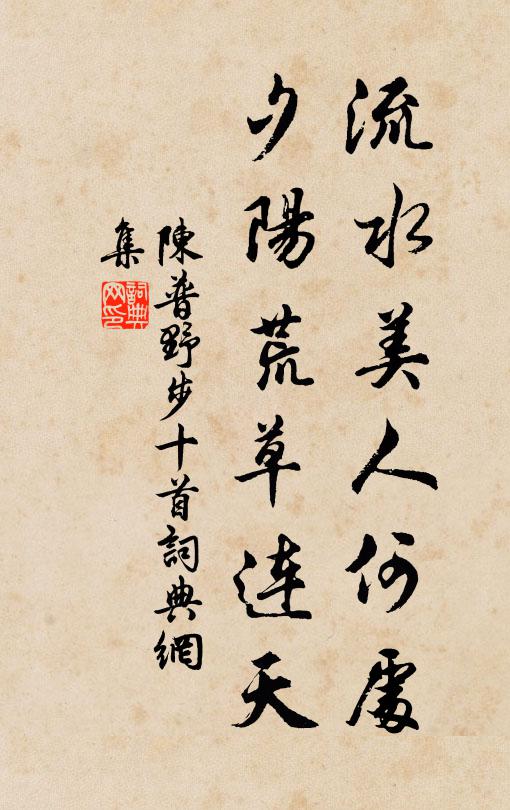 流水美人何處
夕陽荒草連天
陳普野步十首詞典網
集
詞典
网印